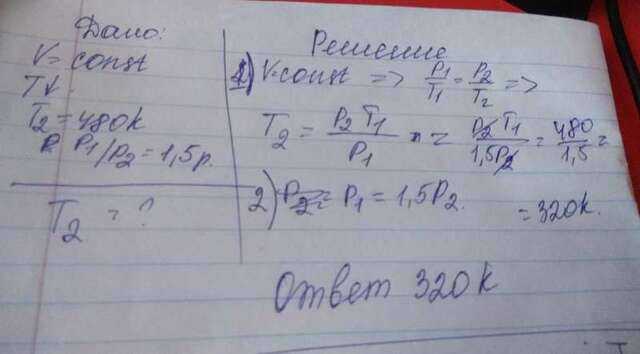 Дано:
V = const
T↓
T₂ = 480k
P₁/P₂ = 1,5р.
T₂ = ?
Решение
1) V=const => P₁/T₁ = P₂/T₂ =>
T₂ = P₂ T₁/P₁ = P₂ T₁/1,5P₂ = 480/1,5 =
2) P₁ = 1,5P₂. = 320k.
Ответ 320 k